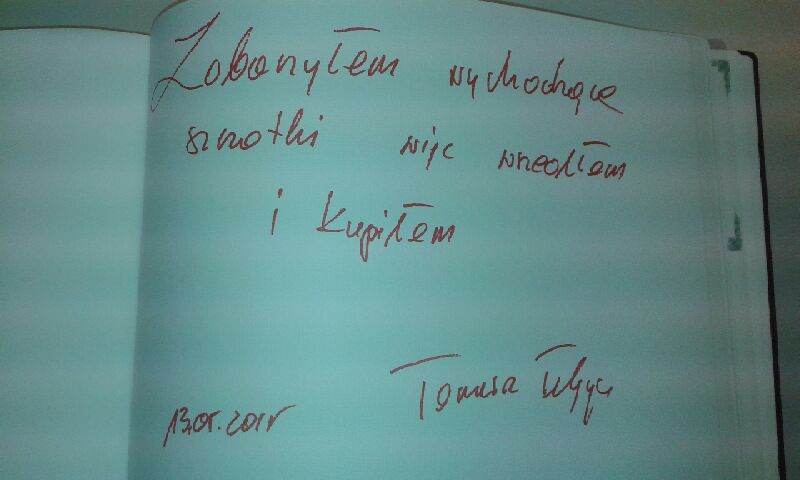 Zobaczyłem wychodzące
szmatki więc wszedłem
i kupiłem
Tomasz
13.05.2015